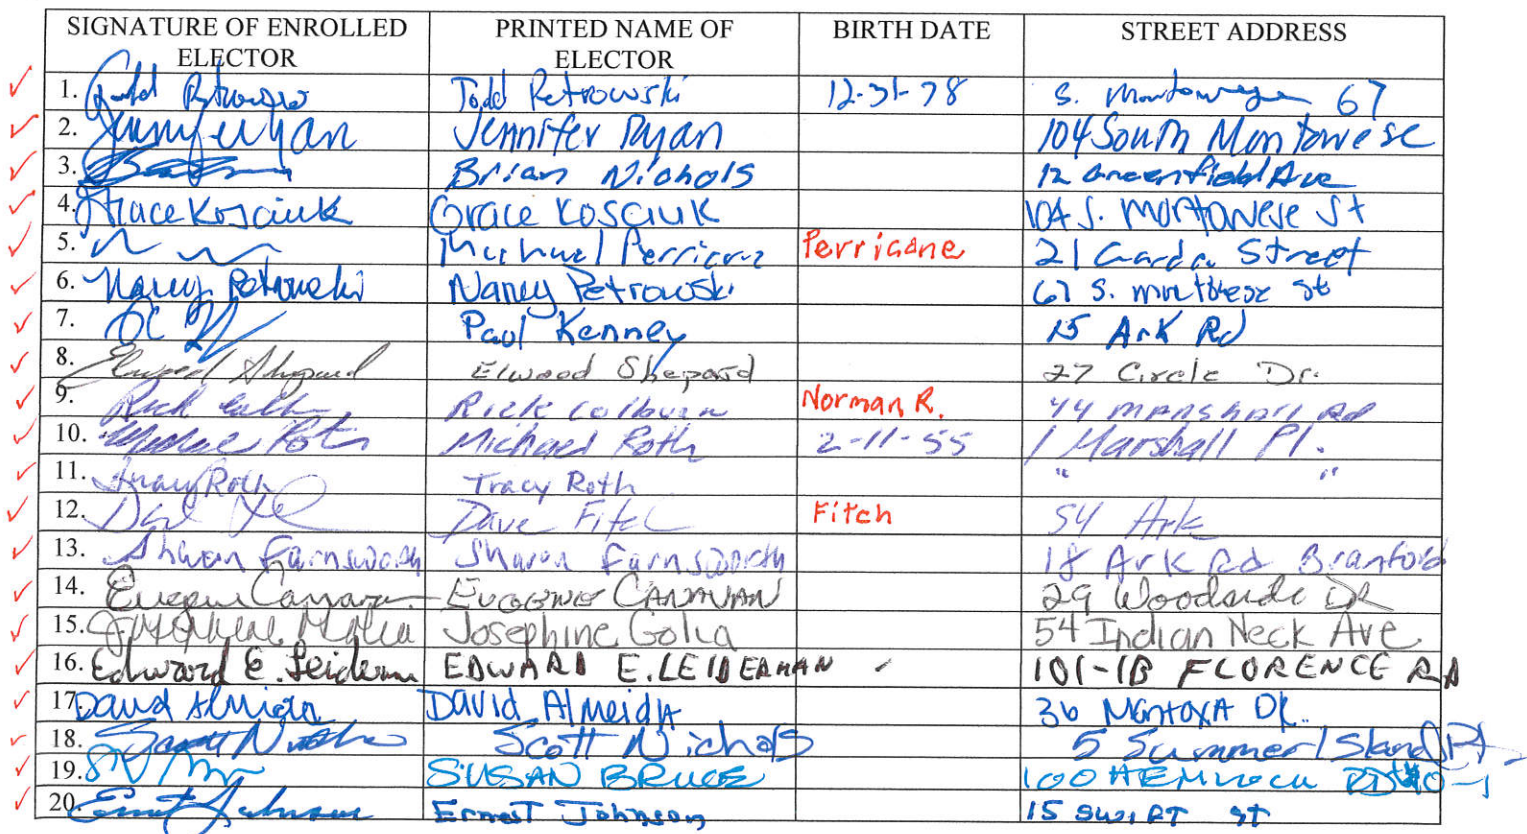 SIGNATURE OF ENROLLED ELECTOR PRINTED NAME OF ELECTOR BIRTH DATE STREET ADDRESS
1. Todd Petrowski 12-31-78 S. 67
2. Jennifer Ryan 104 South Montowese
3. Brian Nichols 12 Greenfield Ave
4. Grace Kosciuk Grace Kosciuk 104 S. Montowese St
5. Michael Perricone Perricone 21 Garden Street
6. Nancy Petrowski Nancy Petrowski 67 S. st
7. Paul Kenney 15 Ark Rd
8. Elwood Shepard Elwood Shepard 27 Circle Dr.
9. Rick Colburn Norman R. 44 Marshall Rd
10. Michael Roth Michael Roth 2-11-55 1 Marshall Pl.
11. Tracy Roth Tracy Roth " "
12. Dave Fitch Fitch 54 Ark
13. Sharon Farnsworth Sharon Farnsworth 18 Ark Rd Branford
14. Eugene Canavan EUGENE CANAVAN 29 Woodside DR
15. Josephine Golia Josephine Golia 54 Indian Neck Ave
16. Edward E. Leiderman EDWARD E. LEIDERMAN 101-1B FLORENCE RD
17. David Almeida David Almeida 36 Montoya DR.
18. Scott Nichols Scott Nichols 5 Summer Island Rd
19. SUSAN BRUCE 100 HEMLOCK RD
20. Ernest Johnson Ernest Johnson 15 st